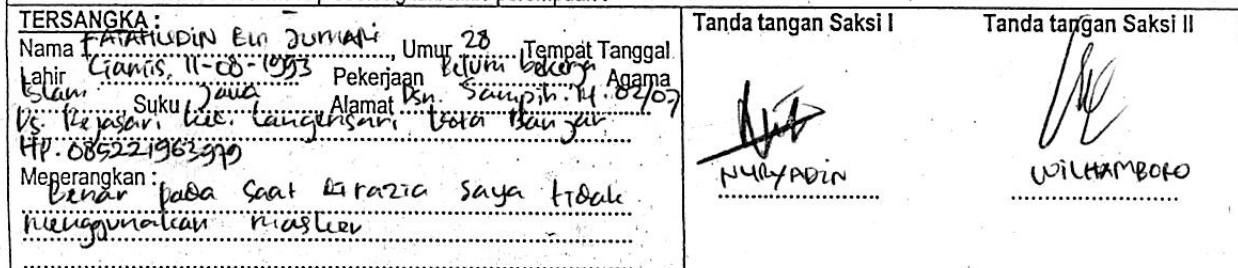 TERSANGKA :
Nama FATAHUDIN Bin JUMARI, Umur 28 Tempat Tanggal
Lahir Ciamis, 11-08-1993 Pekerjaan Belum bekerja Agama
Islam Suku Jawa Alamat Dsn. Sampih. 02/07
Ds. Rejasari Kec. Langensari Kota Banjar
HP. 085221963979
Menerangkan :
Benar pada saat dirazia saya tidak
menggunakan masker
Tanda tangan Saksi I
NURYADIN
Tanda tangan Saksi II
WILHAMBORO